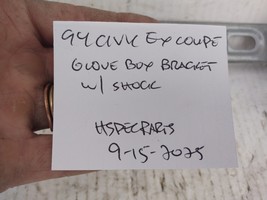 94 CIVIC EX COUPE
GLOVE BOX BRACKET
W/ SHOCK
HSPECPARTS
9-15-2025